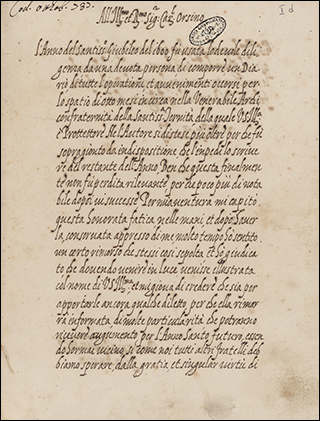 Cod. ottob. 787.
I d
All Ill.mo et R.mo Sig.r Car.l Orsino
L'Anno del Santiss.o Giubileo del 1600 fu usata lodevole dili
genza da una devota persona di comporre un Dia
rio di tutte l'operationi, et avvenimenti occorsi per
lo spatio di otto mesi in circa nella Venerabile Arci
confraternita della Santiss.a Trinità della quale VS Ill.ma
è Prottettore Ne l'Autore si distese più oltre per che fu
sopragionto da indispositione che l'impedì lo scrive
re del restante dell'Anno Ben che questa fu qualmen
te non fu perdita rilevante per che poco più di nota
bile dopoi vi successe Per mia ventura mi capitò
questa honorata fatica nelle mani, et dopo haver
la conservata appresso di me molto tempo hò sentito
un certo rimorso che stessi così sepolta, et hò giudica
to che dovendo venire in luce venisse illustrata
col nome di VS Ill.ma et mi giova di credere che sia per
apportarle ancora qualche diletto, per che ella rimar
rà informata di molte particolarità che potranno
ricevere augumento per l'Anno Santo futuro, essen
do hormai vicino, si come noi tutti altri fratelli deb
biamo sperare dalla gratia, et singular virtù di